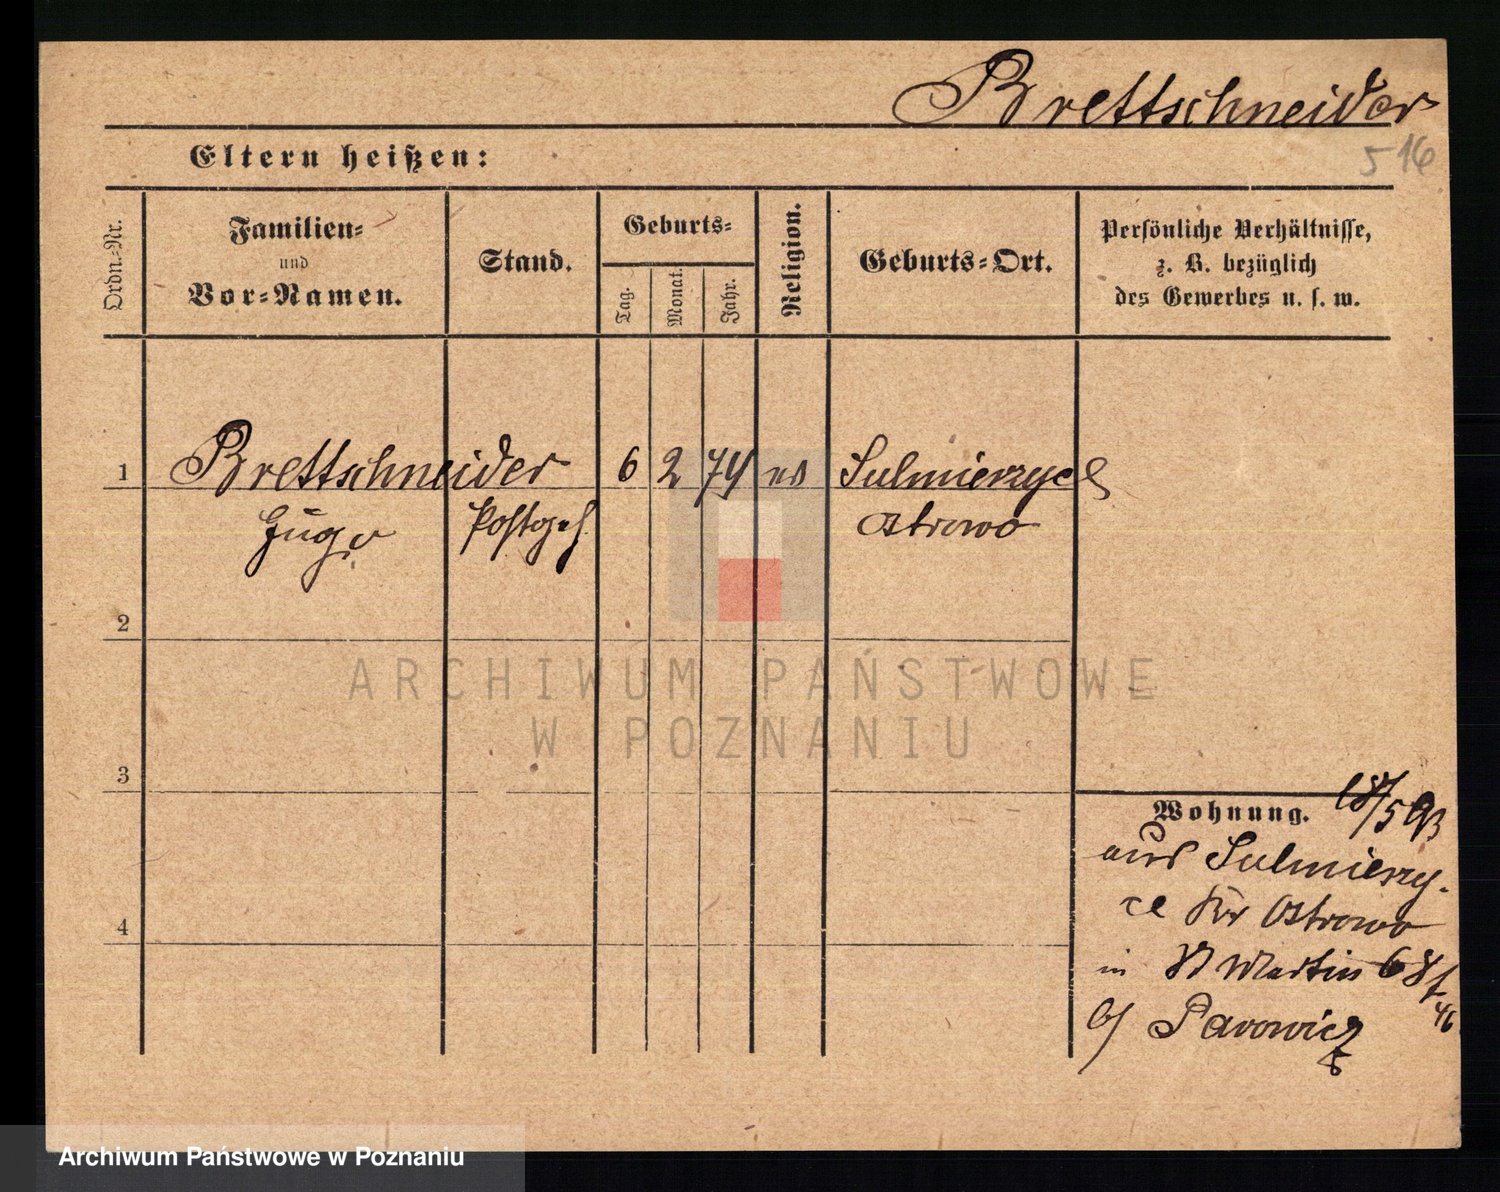 Brettschneider
516
Eltern heißen:
Ordn.-Nr.
Familien-
und
Vor-Namen.
Stand.
Geburts-
Tag.
Monat.
Jahr.
Religion.
Geburts-Ort.
Persönliche Verhältnisse,
z. B. bezüglich
des Gewerbes u. s. w.
1 Brettschneider 6 2 74 Sulmierzyce
Hugo Postgeh Ostrowo
2
ARCHIWUM PAŃSTWOWE
W POZNANIU
3
Wohnung. 18/5 93
aus Sulmierzy-
ce Kr Ostrowo
in St Martin 68
b/
4
Archiwum Państwowe w Poznaniu